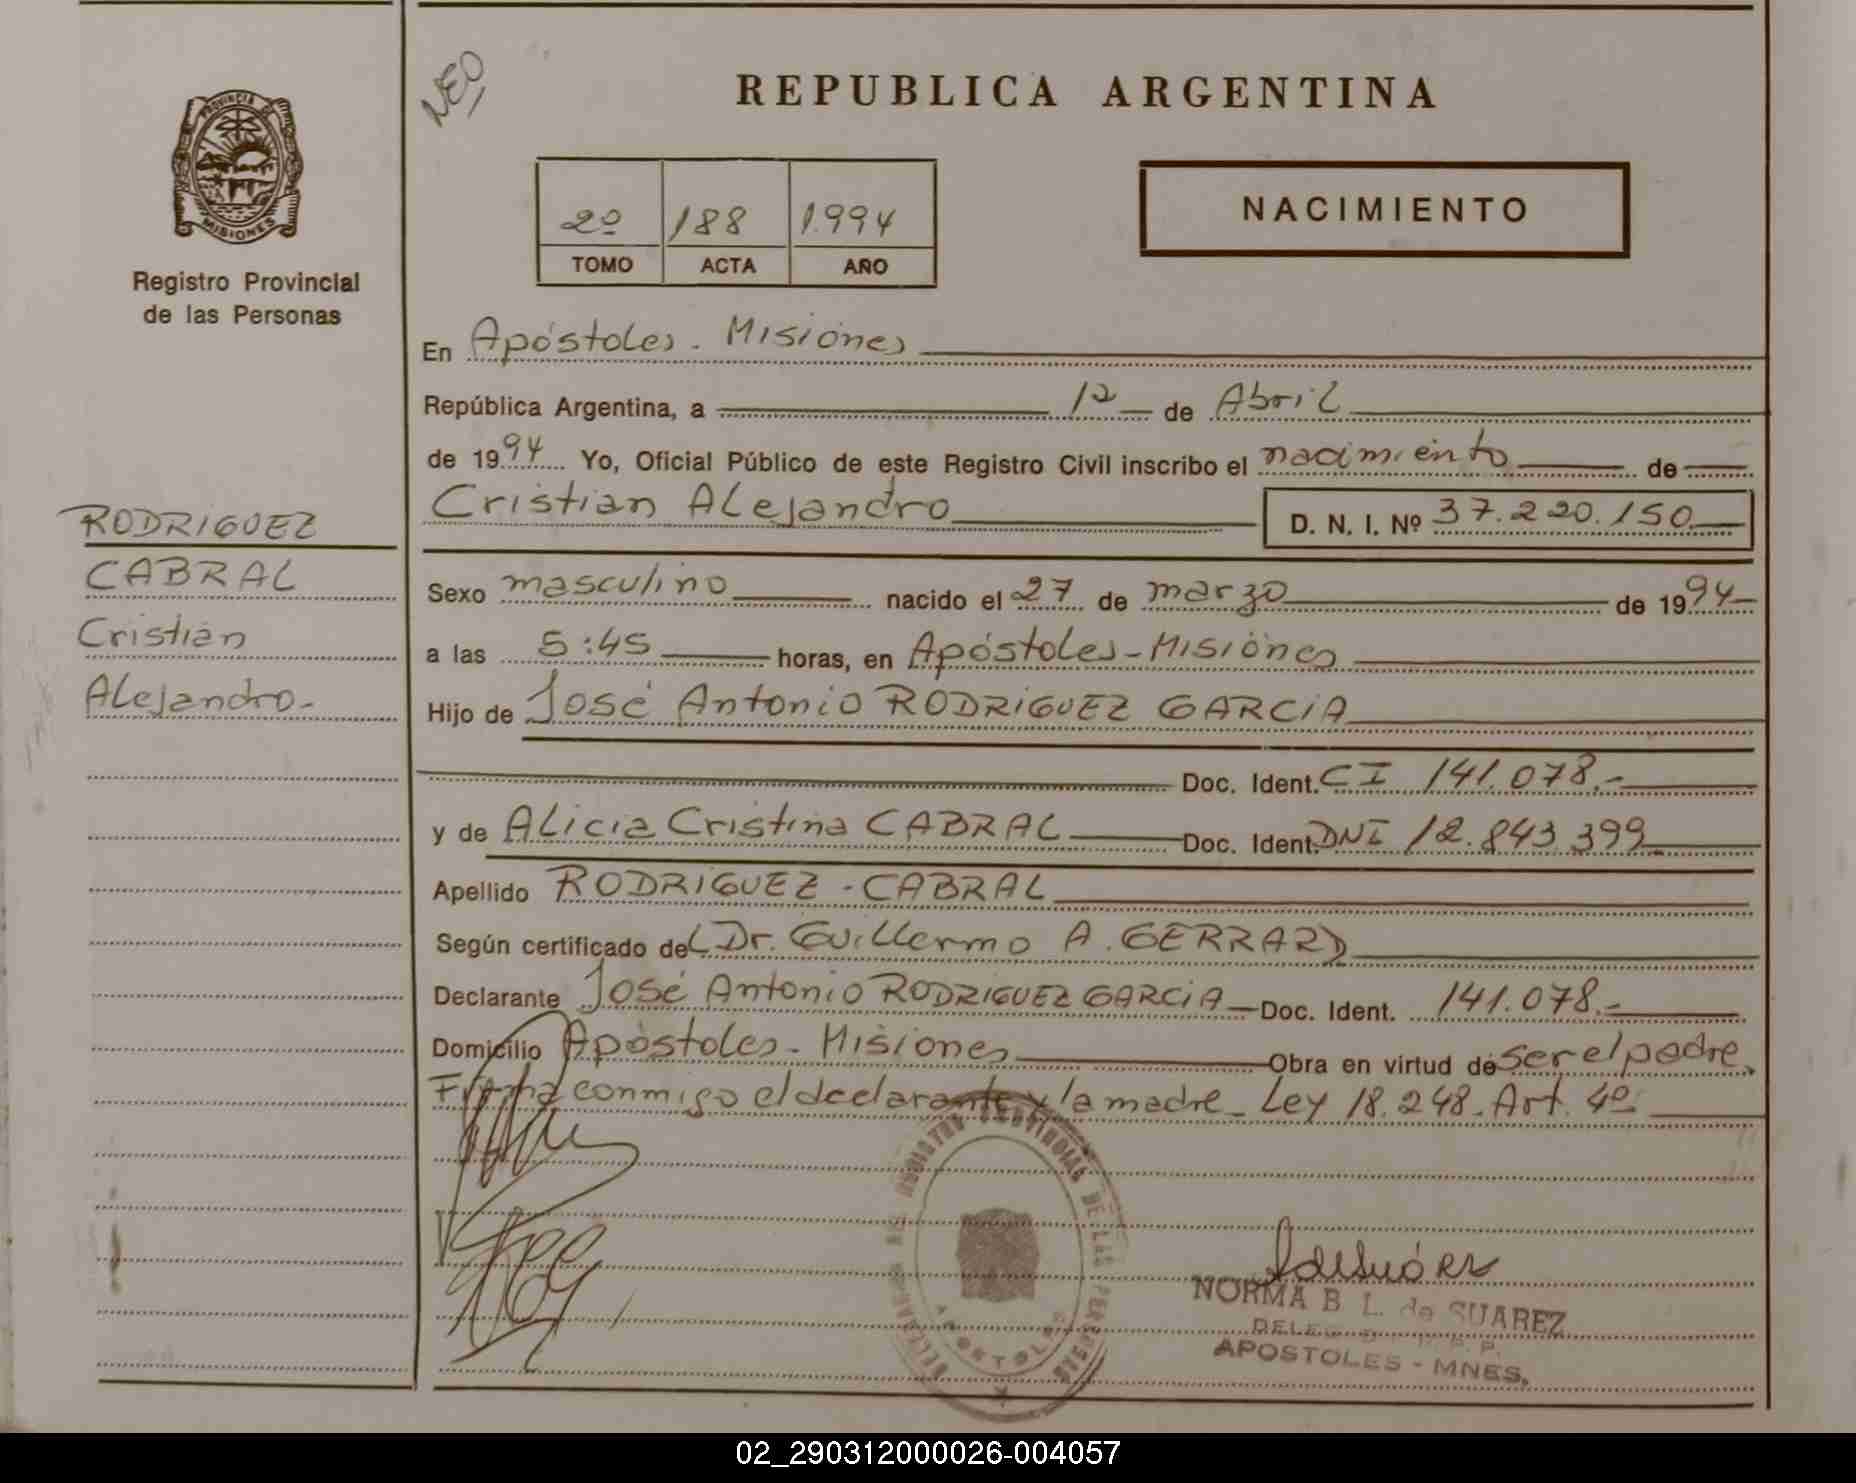 NEO
REPUBLICA ARGENTINA
PROVINCIA DE
MISIONES
Registro Provincial
de las Personas
2º 188 1.994
TOMO ACTA AÑO
NACIMIENTO
En Apóstoles - Misiones
República Argentina, a 12 de Abril
de 1994 Yo, Oficial Público de este Registro Civil inscribo el nacimiento de
Cristian Alejandro D. N. I. Nº 37.220.150
RODRIGUEZ
CABRAL
Cristian
Alejandro-
Sexo masculino nacido el 27 de marzo de 1994
a las 5:45 horas, en Apóstoles - Misiones
Hijo de José Antonio RODRIGUEZ GARCIA
Doc. Ident. CI 141.078.-
y de Alicia Cristina CABRAL Doc. Ident. DNI 12.843.399
Apellido RODRIGUEZ - CABRAL
Según certificado de (Dr. Guillermo A. GERRARD)
Declarante José Antonio RODRIGUEZ GARCIA Doc. Ident. 141.078.-
Domicilio Apóstoles - Misiones Obra en virtud de ser el padre.
Firma conmigo el declarante y la madre - Ley 18.248. Art. 4º
REGISTRO PROVINCIAL DE LAS PERSONAS
APOSTOLES
NORMA B. L. de SUAREZ
APOSTOLES - MNES.
02_290312000026-004057